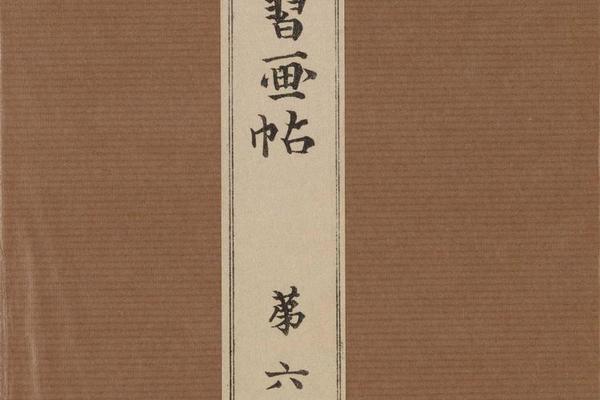 習画帖 第六